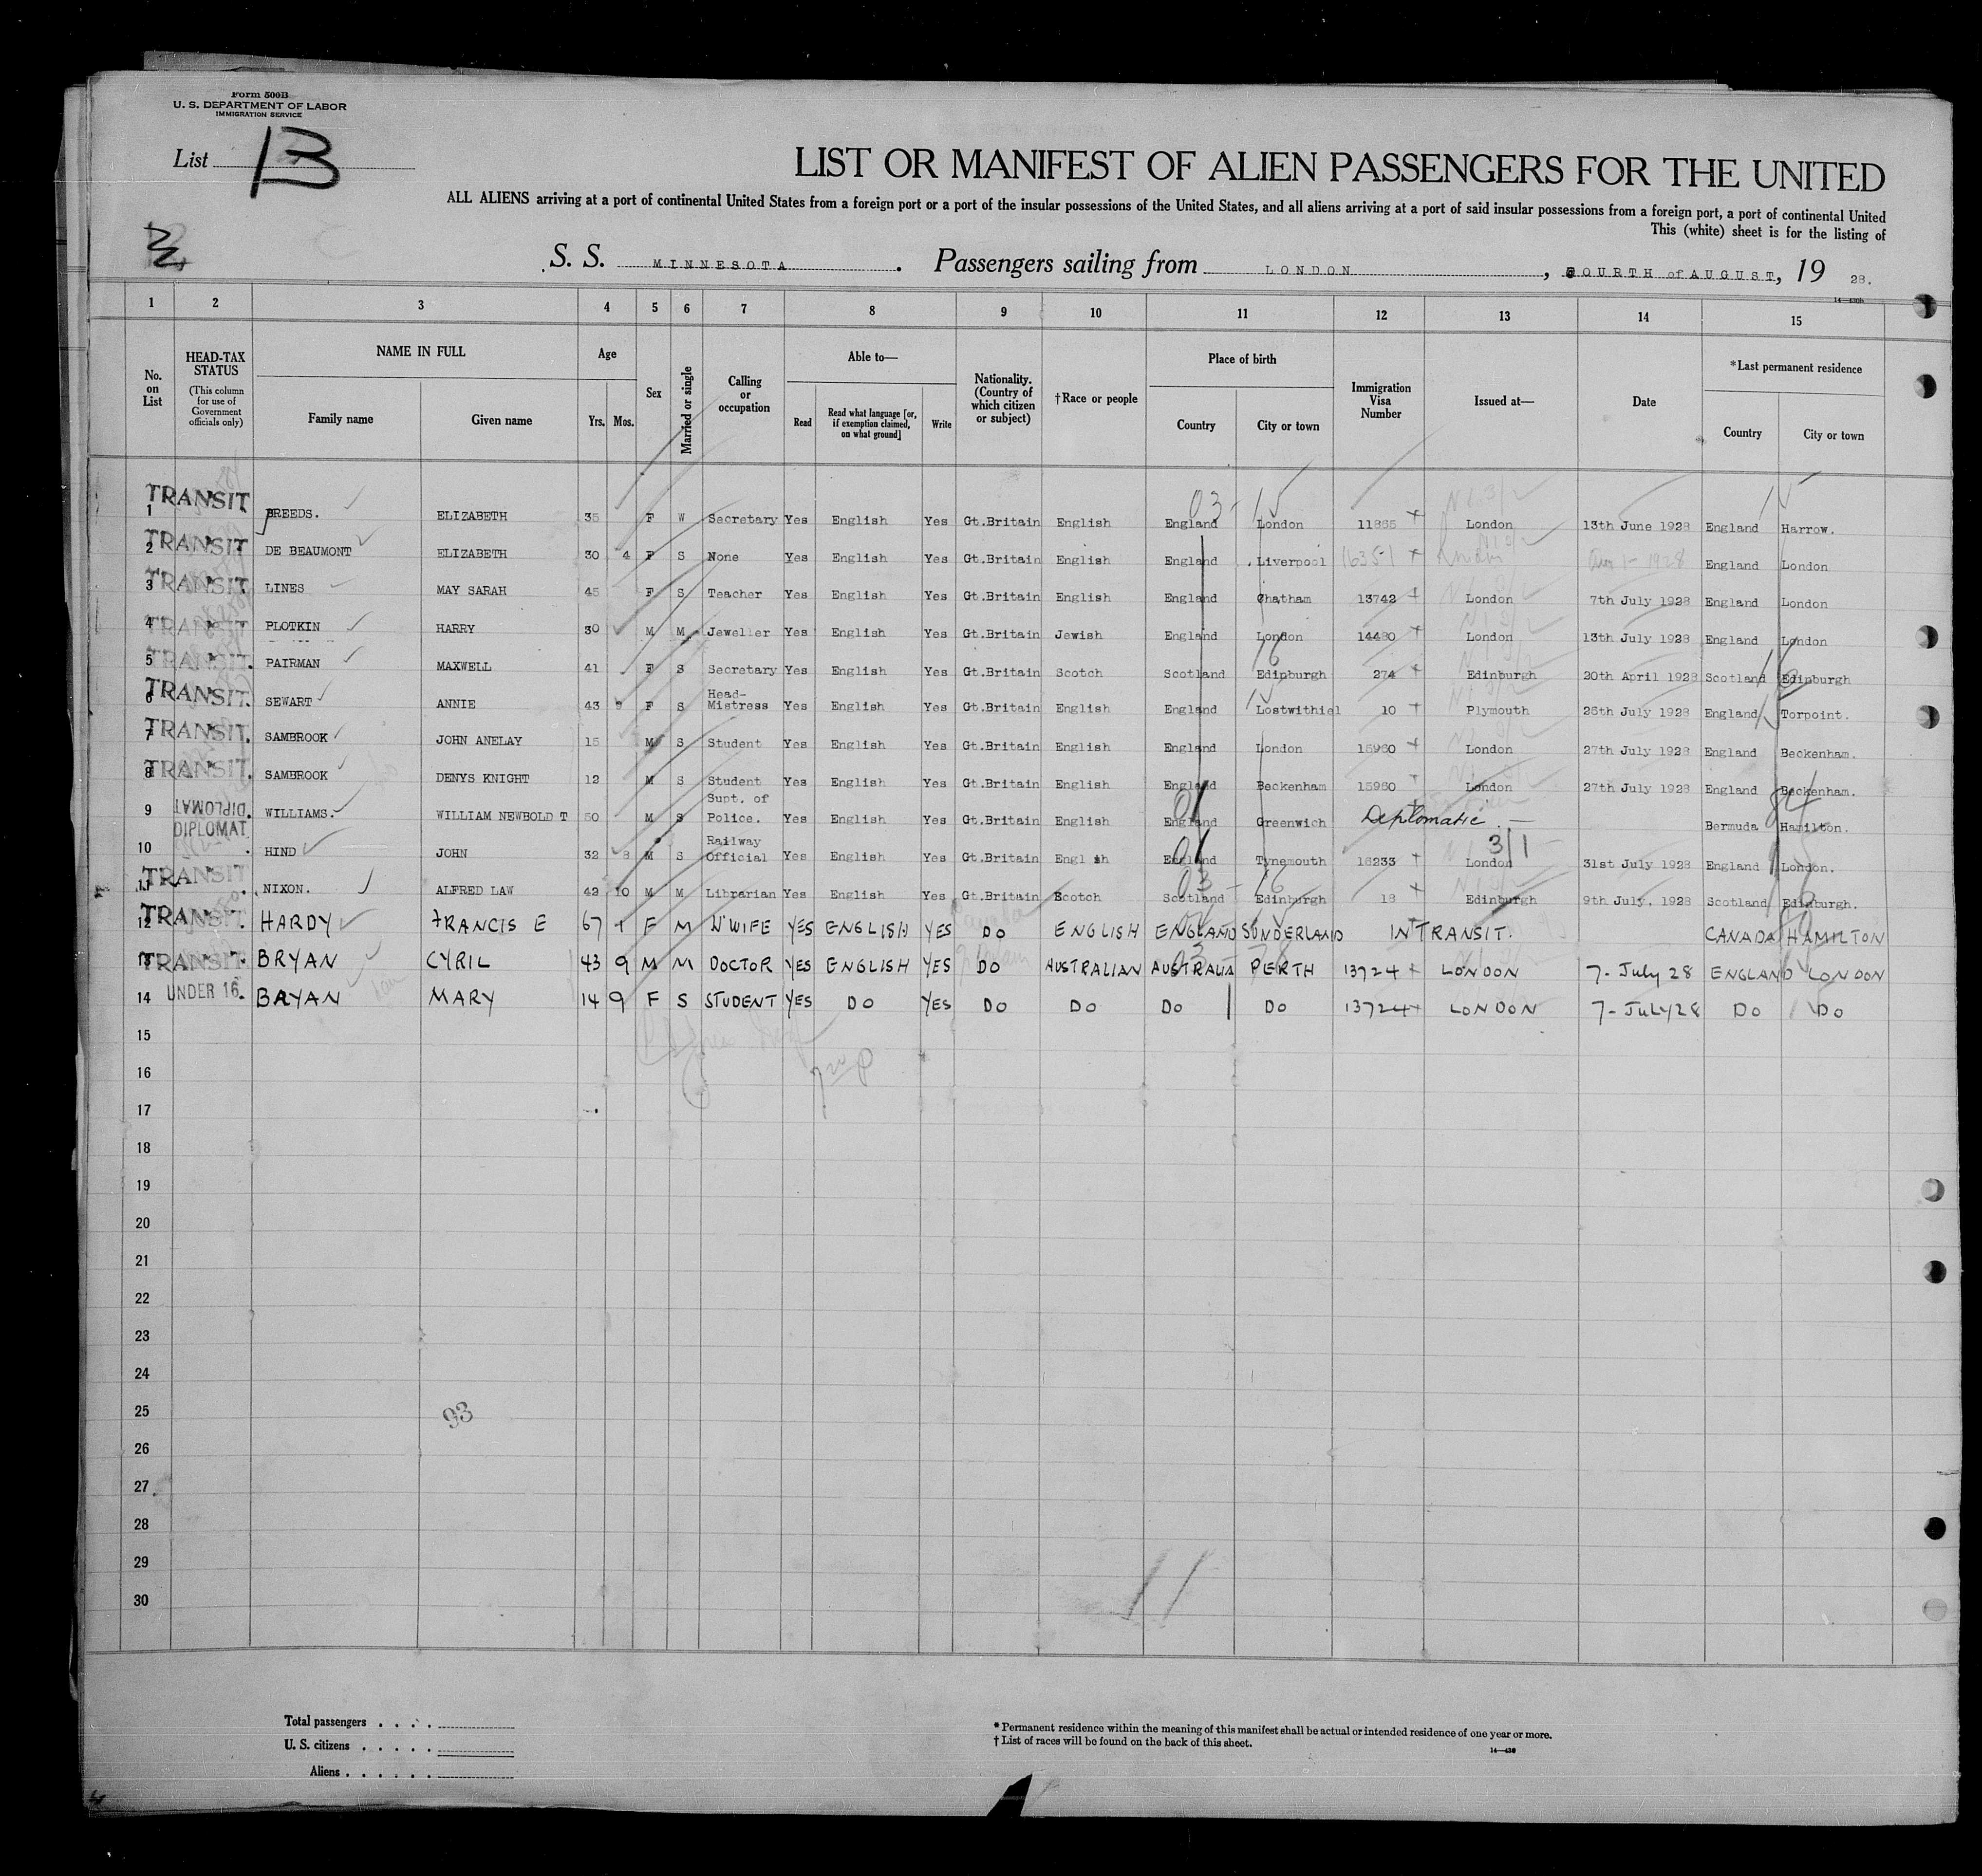 Form 500B
U. S. DEPARTMENT OF LABOR
IMMIGRATION SERVICE
List 13
LIST OR MANIFEST OF ALIEN PASSENGERS FOR THE UNITED
ALL ALIENS arriving at a port of continental United States from a foreign port or a port of the insular possessions of the United States, and all aliens arriving at a port of said insular possessions from a foreign port, a port of continental United
This (white) sheet is for the listing of
S. S. MINNESOTA. Passengers sailing from LONDON, FOURTH of AUGUST, 19 28.
1 2 3 4 5 6 7 8 9 10 11 12 13 14 15
No. on List
HEAD-TAX STATUS (This column for use of Government officials only)
NAME IN FULL Family name Given name
Age Yrs. Mos.
Sex
Married or single
Calling or occupation
Able to— Read Read what language [or, if exemption claimed, on what ground] Write
Nationality. (Country of which citizen or subject)
†Race or people
Place of birth Country City or town
Immigration Visa Number
Issued at—
Date
*Last permanent residence Country City or town
1 TRANSIT. BREEDS. ELIZABETH 35 F W Secretary Yes English Yes Gt.Britain English England London 11865 London 13th June 1928 England Harrow.
2 TRANSIT DE BEAUMONT ELIZABETH 30 4 F S None Yes English Yes Gt.Britain English England Liverpool 16351 London Aug 1- 1928 England London
3 TRANSIT. LINES MAY SARAH 45 F S Teacher Yes English Yes Gt.Britain English England Chatham 13742 London 7th July 1928 England London
4 TRANSIT PLOTKIN HARRY 30 M M Jeweller Yes English Yes Gt.Britain Jewish England London 14480 London 13th July 1928 England London
5 TRANSIT. PAIRMAN MAXWELL 41 F S Secretary Yes English Yes Gt.Britain Scotch Scotland Edinburgh 274 Edinburgh 20th April 1928 Scotland Edinburgh
6 TRANSIT. SEWART ANNIE 43 9 F S Head-Mistress Yes English Yes Gt.Britain English England Lostwithiel 10 Plymouth 26th July 1928 England Torpoint.
7 TRANSIT. SAMBROOK JOHN ANELAY 15 M S Student Yes English Yes Gt.Britain English England London 15960 London 27th July 1928 England Beckenham.
8 TRANSIT. SAMBROOK DENYS KNIGHT 12 M S Student Yes English Yes Gt.Britain English England Beckenham 15960 London 27th July 1928 England Beckenham.
9 DIPLOMAT DIPLOMAT. WILLIAMS. WILLIAM NEWBOLD T 50 M S Supt. of Police. Yes English Yes Gt.Britain English England Greenwich Diplomatic.— Bermuda Hamilton.
10 HIND JOHN 32 8 M S Railway Official Yes English Yes Gt.Britain English England Tynemouth 16233 London 3/1 31st July 1928 England London.
11 TRANSIT. NIXON. ALFRED LAW 42 10 M M Librarian Yes English Yes Gt.Britain Scotch Scotland Edinburgh 18 Edinburgh 9th July. 1928 Scotland Edinburgh.
12 TRANSIT. HARDY FRANCIS E 67 1 F M H'WIFE YES ENGLISH YES DO ENGLISH ENGLAND SUNDERLAND IN TRANSIT. CANADA HAMILTON
13 TRANSIT. BRYAN CYRIL 43 9 M M DOCTOR YES ENGLISH YES DO AUSTRALIAN AUSTRALIA PERTH 13724 LONDON 7- July 28 ENGLAND LONDON
14 UNDER 16. BRYAN MARY 14 9 F S STUDENT YES DO YES DO DO DO DO 13724 LONDON 7- JULY 28 DO DO
15
16
17
18
19
20
21
22
23
24
25
93
26
27
28
29
30
11
Total passengers . . . .
U. S. citizens . . . . .
Aliens . . . . . .
* Permanent residence within the meaning of this manifest shall be actual or intended residence of one year or more.
† List of races will be found on the back of this sheet.